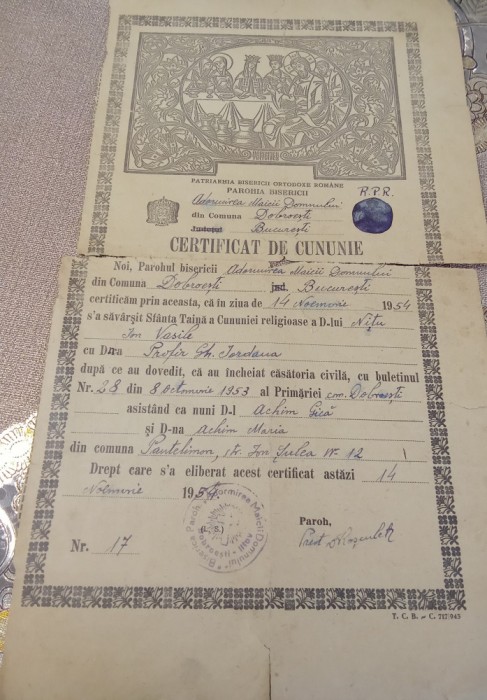 PATRIARHIA BISERICII ORTODOXE ROMÂNE
PAROHIA BISERICII
R.P.R.
Adormirea Maicii Domnului
din Comuna Dobroești
Județul București
CERTIFICAT DE CUNUNIE
Noi, Parohul bisericii Adormirea Maicii Domnului
din Comuna Dobroești jud. București
certificăm prin aceasta, că în ziua de 14 Noemvrie 1954
s'a săvârșit Sfânta Taină a Cununiei religioase a D-lui Nițu
Ion Vasile
cu D-ra Profir Gh. Iordana
după ce au dovedit, că au încheiat căsătoria civilă, cu buletinul
Nr. 28 din 8 Octomvrie 1953 al Primăriei com. Dobroești
asistând ca nuni D-l Achim Gică
și D-na Achim Maria
din comuna Pantelimon, str. Ion Șulea Nr. 12
Drept care s'a eliberat acest certificat astăzi 14
Noemvrie 1954
Paroh,
(L. S.)
Adormirea Maicii Domnului
Nr. 17
Preot
T. C. B. – C. 717/945